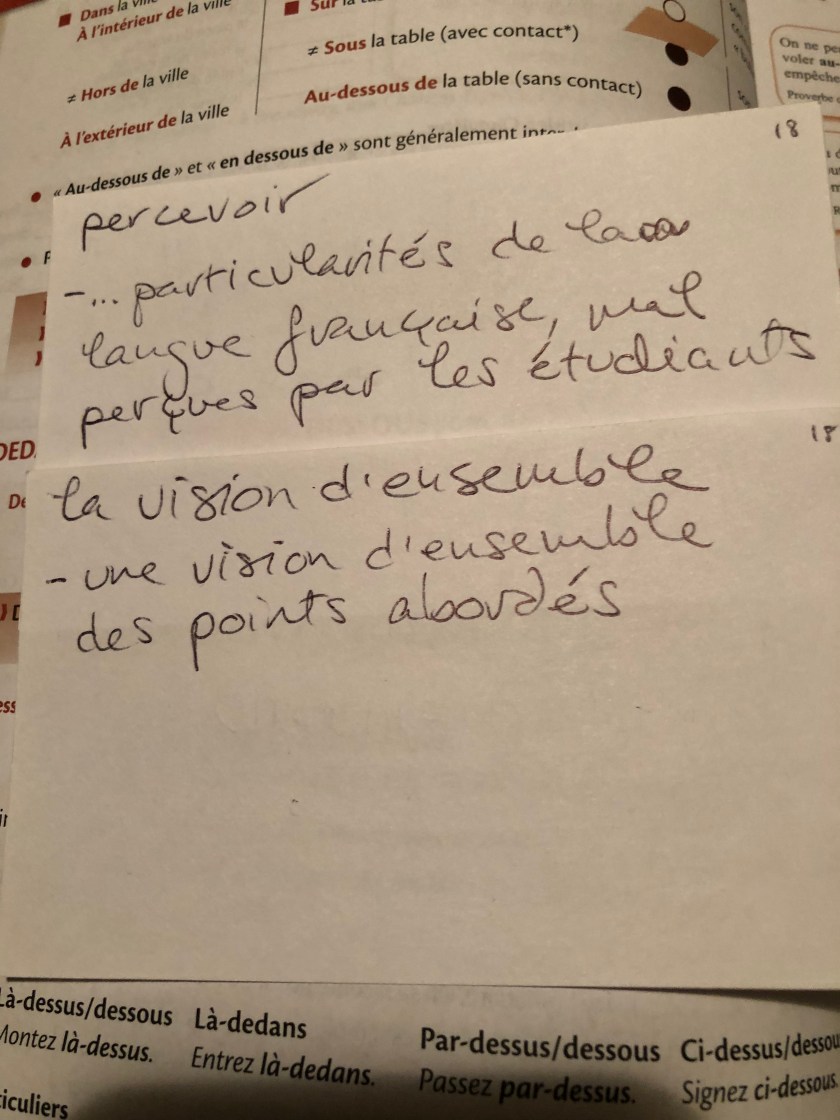 Dans la ville
À l'intérieur de la ville
≠ Hors de la ville
À l'extérieur de la ville
Sur la
≠ Sous la table (avec contact*)
Au-dessous de la table (sans contact)
On ne
voler au-
empêche
Proverbe
• « Au-dessous de » et « en dessous de » sont généralement
18
percevoir
-... particularités de la
langue française, mal
perçues par les étudiants
18
la vision d'ensemble
- une vision d'ensemble
des points abordés
Là-dessus/dessous
Montez là-dessus.
Là-dedans
Entrez là-dedans.
Par-dessus/dessous
Passez par-dessus.
Ci-dessus/dessou
Signez ci-dessous.
iculiers